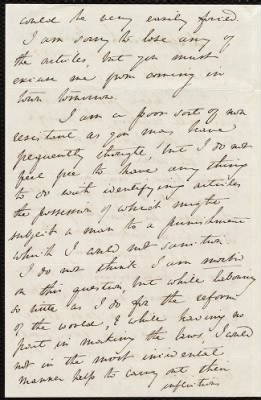 could be very easily forced.
I am sorry to lose any of
the articles, but you must
excuse me from coming in
town tomorrow.
I am a poor sort of non
resistant as you may have
frequently thought, but I do not
feel free to have any thing
to do with identifying articles
the possession of which might
subject a man to a punishment
which I could not sanction
I do not think I am morbid
on this question, but while labouring
so little as I do for the reform
of the world, & while having no
part in making the laws, I could
not in the most incidental
manner help to carry out their
inflictions